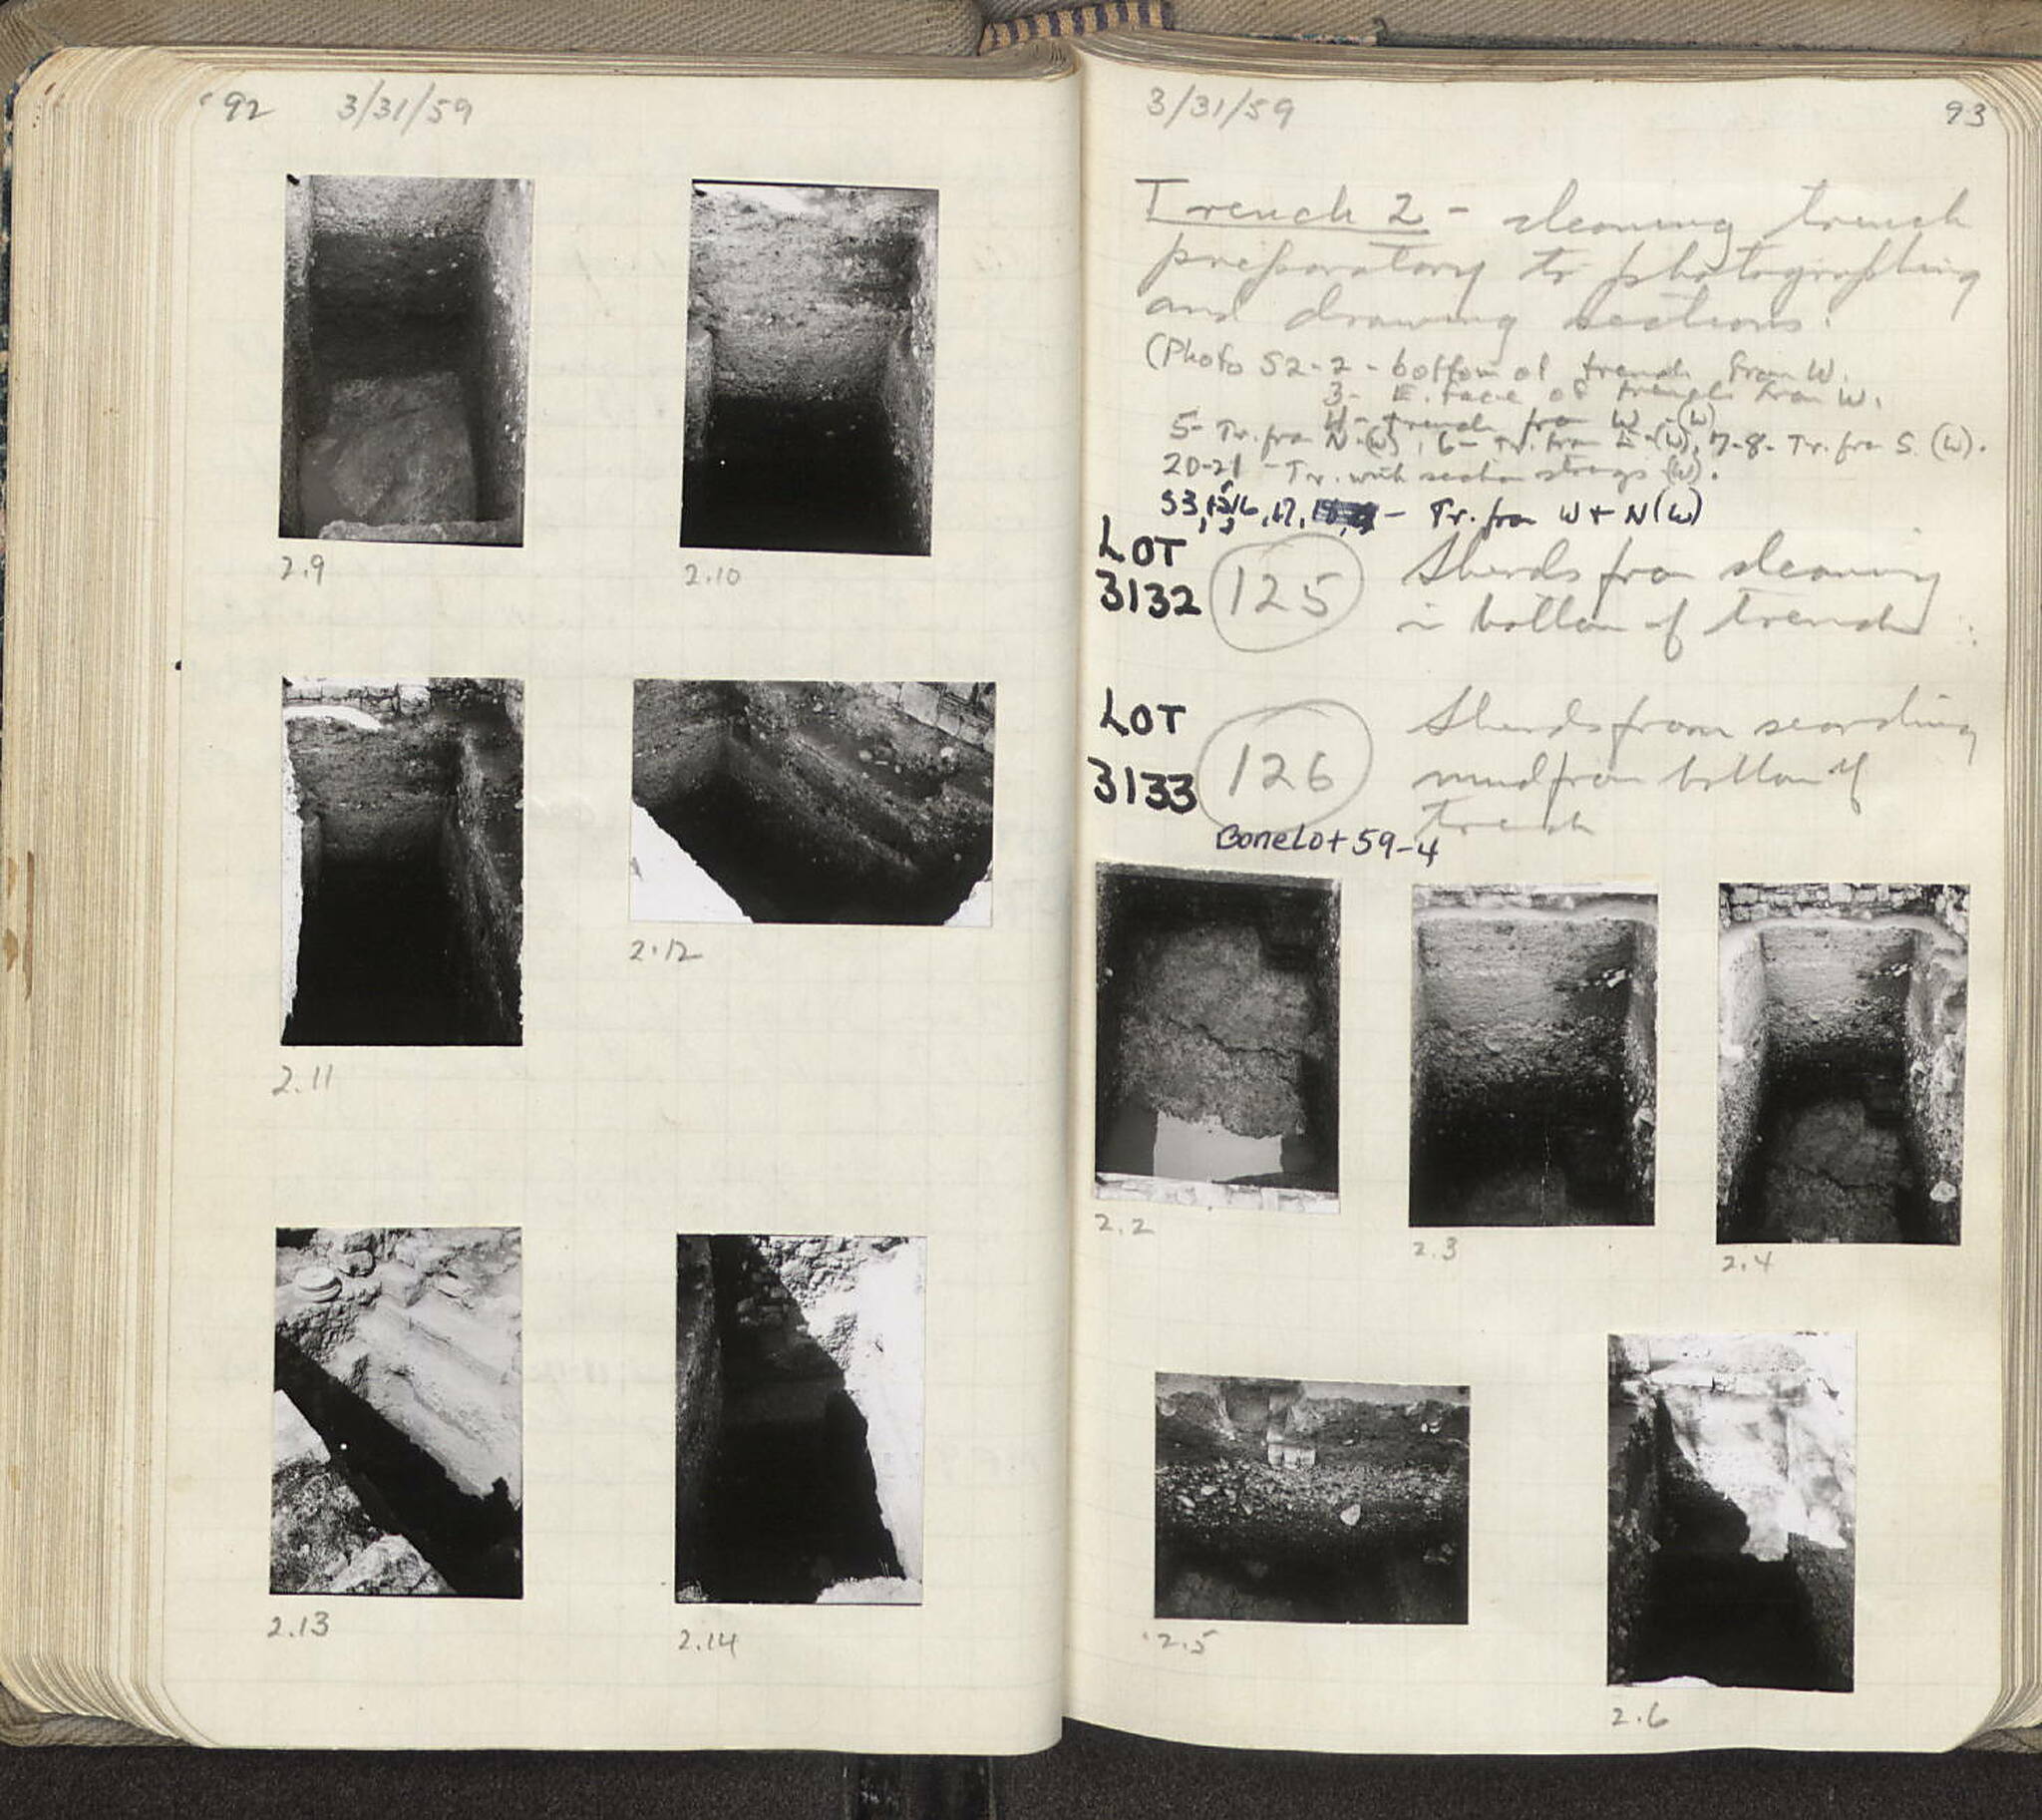 92 3/31/59
2.9
2.10
2.11
2.12
2.13
2.14
3/31/59 93
Trench 2 - cleaning trench
preparatory to photographing
and drawing sections.
(Photo S2-2 - bottom of trench from W.
3- E. face of trench from W.
4- trench from W -(W)
5- Tr. from N-(W), 6- Tr. from E-(W), 7-8- Tr. from S. (W).
20-21 - Tr. with section strings (W).
S3, 16, 17, - Tr. from W + N (W)
LOT
3132 125 Sherds from cleaning
in bottom of trench
LOT
3133 126 Sherds from searching
mud from bottom of
trench
Bone Lot 59-4
2.2
2.3
2.4
2.5
2.6